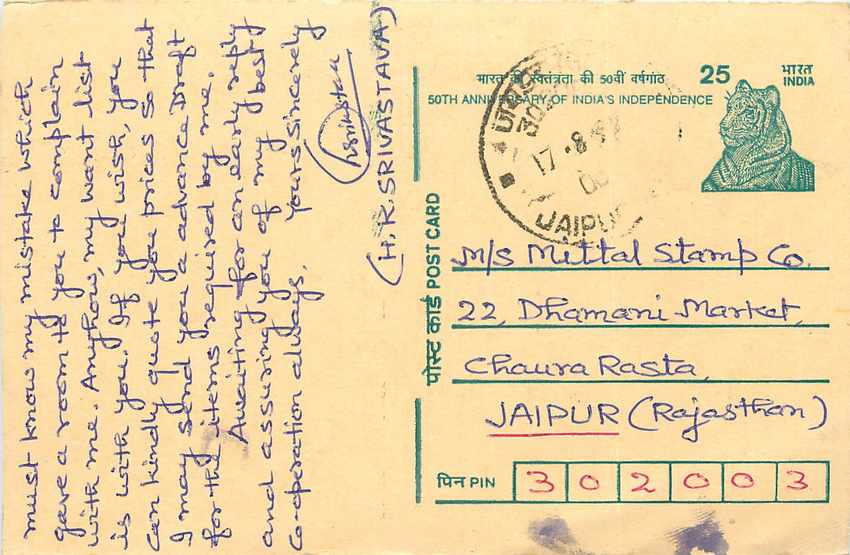 must know my mistake which
gave a room to you to complain
with me. Anyhow, my want list
is with you. If you wish, you
can kindly quote your prices so that
I may send you a advance Draft
for the items required by me.
Awaiting for an early reply
and assuring you of my best
Co-operation always.
Yours Sincerely
(H.R.SRIVASTAVA)
भारत की स्वतंत्रता की 50वीं वर्षगांठ
50TH ANNIVERSARY OF INDIA'S INDEPENDENCE
25
भारत
INDIA
17-8-
JAIPUR
पोस्ट कार्ड POST CARD
M/S Mittal Stamp Co.
22, Dhamani Market,
Chaura Rasta,
JAIPUR (Rajasthan)
पिन PIN 302003